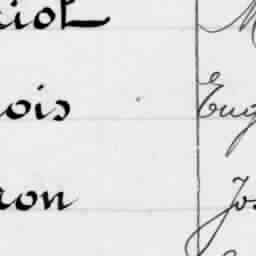 riot M
ois Eug
ron Jos